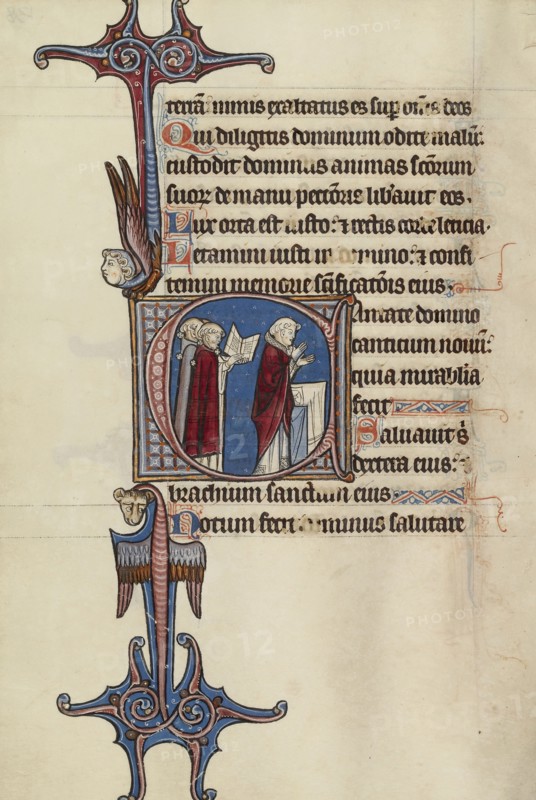 terrā. nimis exaltatus es sup om̄s deos
Qui diligitis dominum odite malū:
custodit dominus animas sc̄orum
suoꝝ de manu pecc̄oris lib'auit eos.
Lux orta est iusto: ⁊ rectis corde leticia.
Letamini iusti in domino: ⁊ confi
temini memorie sc̄ificatōis eius.
Cantate domino
canticum nouū:
quia mirab̄lia
fecit
Saluauit s̄
dextera eius:
brachium sanctum eius
Notum fecit dominus salutare
PHOTO12